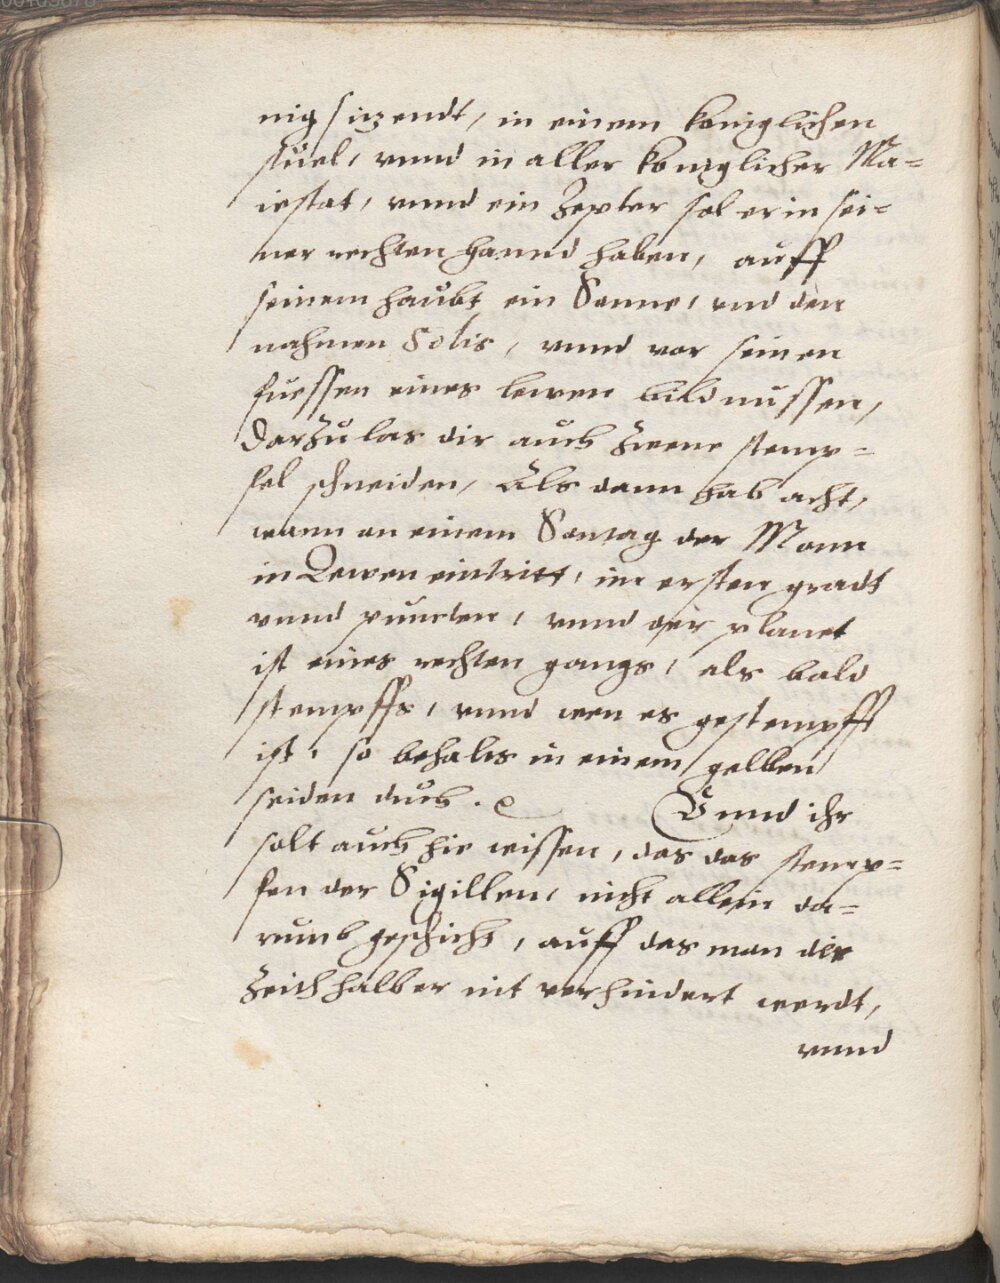 nig sitzendt, in einem königlichen
stuel, vnnd in aller königlicher Ma=
iestat, vnnd ein Zepter sol er in sei=
ner rechten hannd haben, auff
seinem haubt ein Sonne, vnd den
nahmen Solis, vnnd vor seinen
fuessen eines lewen bildnussen,
Darzu las dir auch zwene stemp=
fel schneiden, Als dann hab acht,
wann an einem Sontag der Monn
in Lewen eintritt, im ersten gradt
vnnd puncten, vnnd der planet
ist eines rechten gangs, als bald
stempffs, vnnd wen es gestempfft
ist, so behalts in einem gelben
seiden duch. Vnnd ihr
solt auch hie wissen, das das stemp=
fen der Sigillen, nicht allein da=
rumb geschicht, auff das man der
Zeith halber nit verhindert werdt,
vnnd